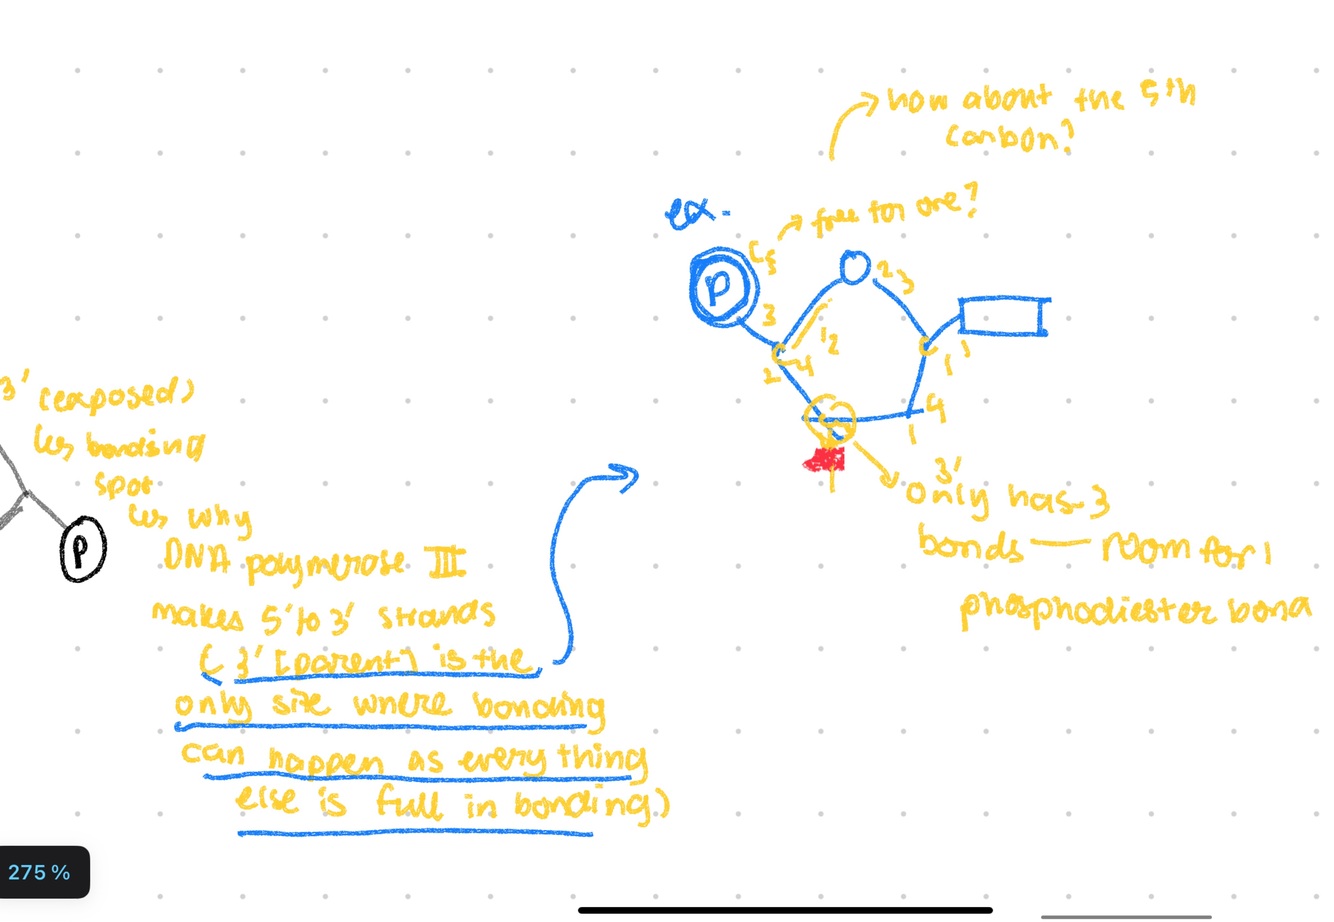 how about the 5th
carbon?
ex.
free for one?
P
C5
O
2 3
3
1 2
C
4
C
1
4
1
3' (exposed)
↳ bonding
spot
↳ why
DNA polymerase III
makes 5' to 3' strands
( 3' [parent] is the
only site where bonding
can happen as everything
else is full in bonding.)
P
3'
only has 3
bonds — room for 1
phosphodiester bond
275 %